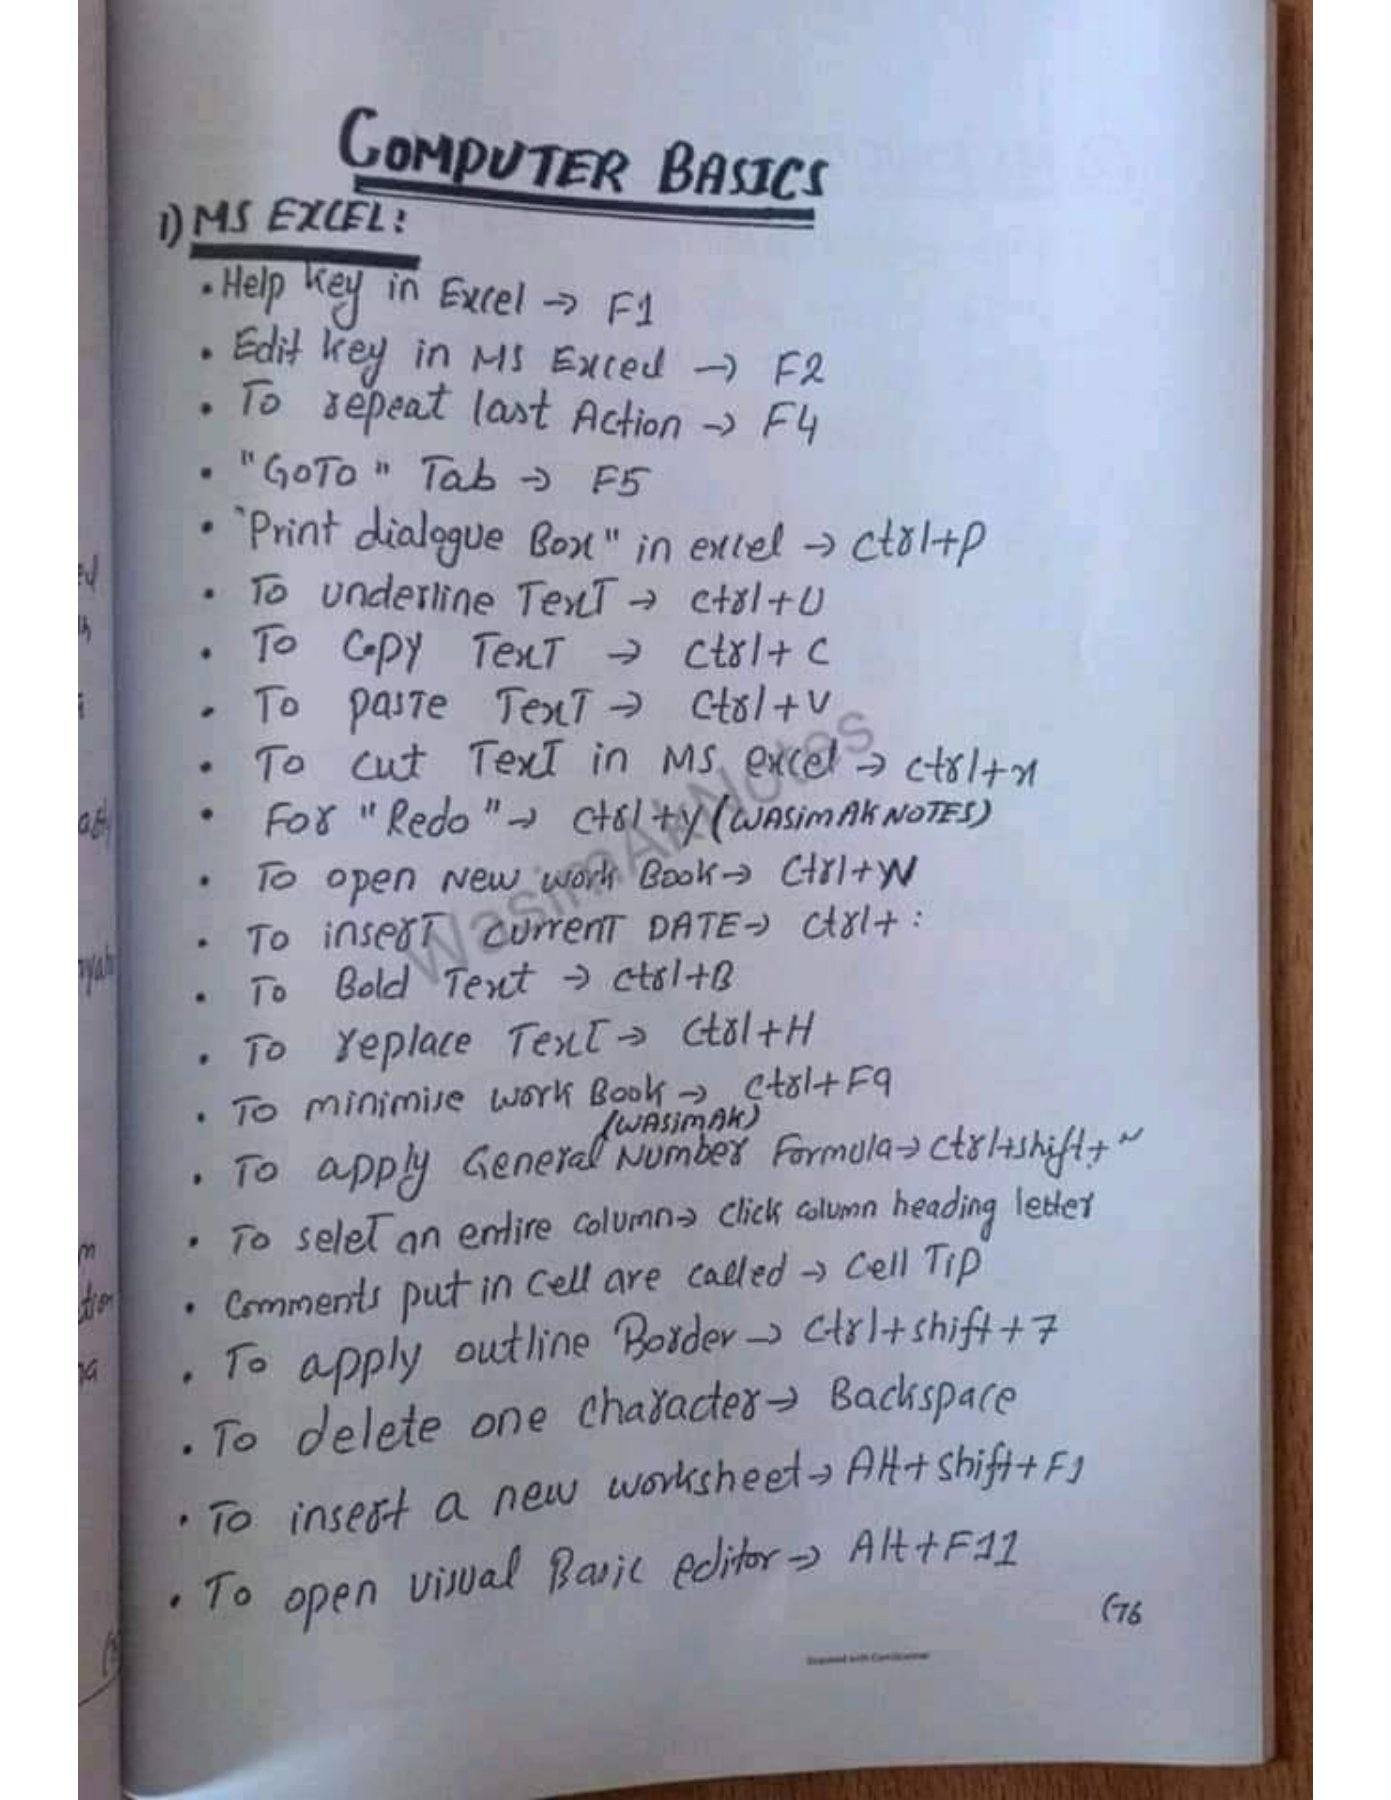 COMPUTER BASICS
1) MS EXCEL:
• Help key in Excel → F1
• Edit key in MS Excel → F2
• To repeat last Action → F4
• "GOTO" Tab → F5
• "Print dialogue Box" in excel → ctrl+P
• To underline Text → ctrl+U
• To Copy Text → ctrl+C
• To paste Text → ctrl+V
• To cut Text in MS excel → ctrl+x
• For "Redo" → ctrl+y (WASIMAKNOTES)
• To open New work Book → Ctrl+N
• To insert current DATE → ctrl+:
• To Bold Text → ctrl+B
• To replace Text → Ctrl+H
• To minimise work Book → Ctrl+F9
(WASIMAK)
• To apply General Number Formula → Ctrl+shift+~
• To selet an entire column → click column heading letter
• Comments put in cell are called → Cell Tip
• To apply outline Border → Ctrl+shift+7
• To delete one character → Backspace
• To insert a new worksheet → Alt+shift+F1
• To open visual Basic editor → Alt+F11
(76
Scanned with CamScanner
WasimAkNotes